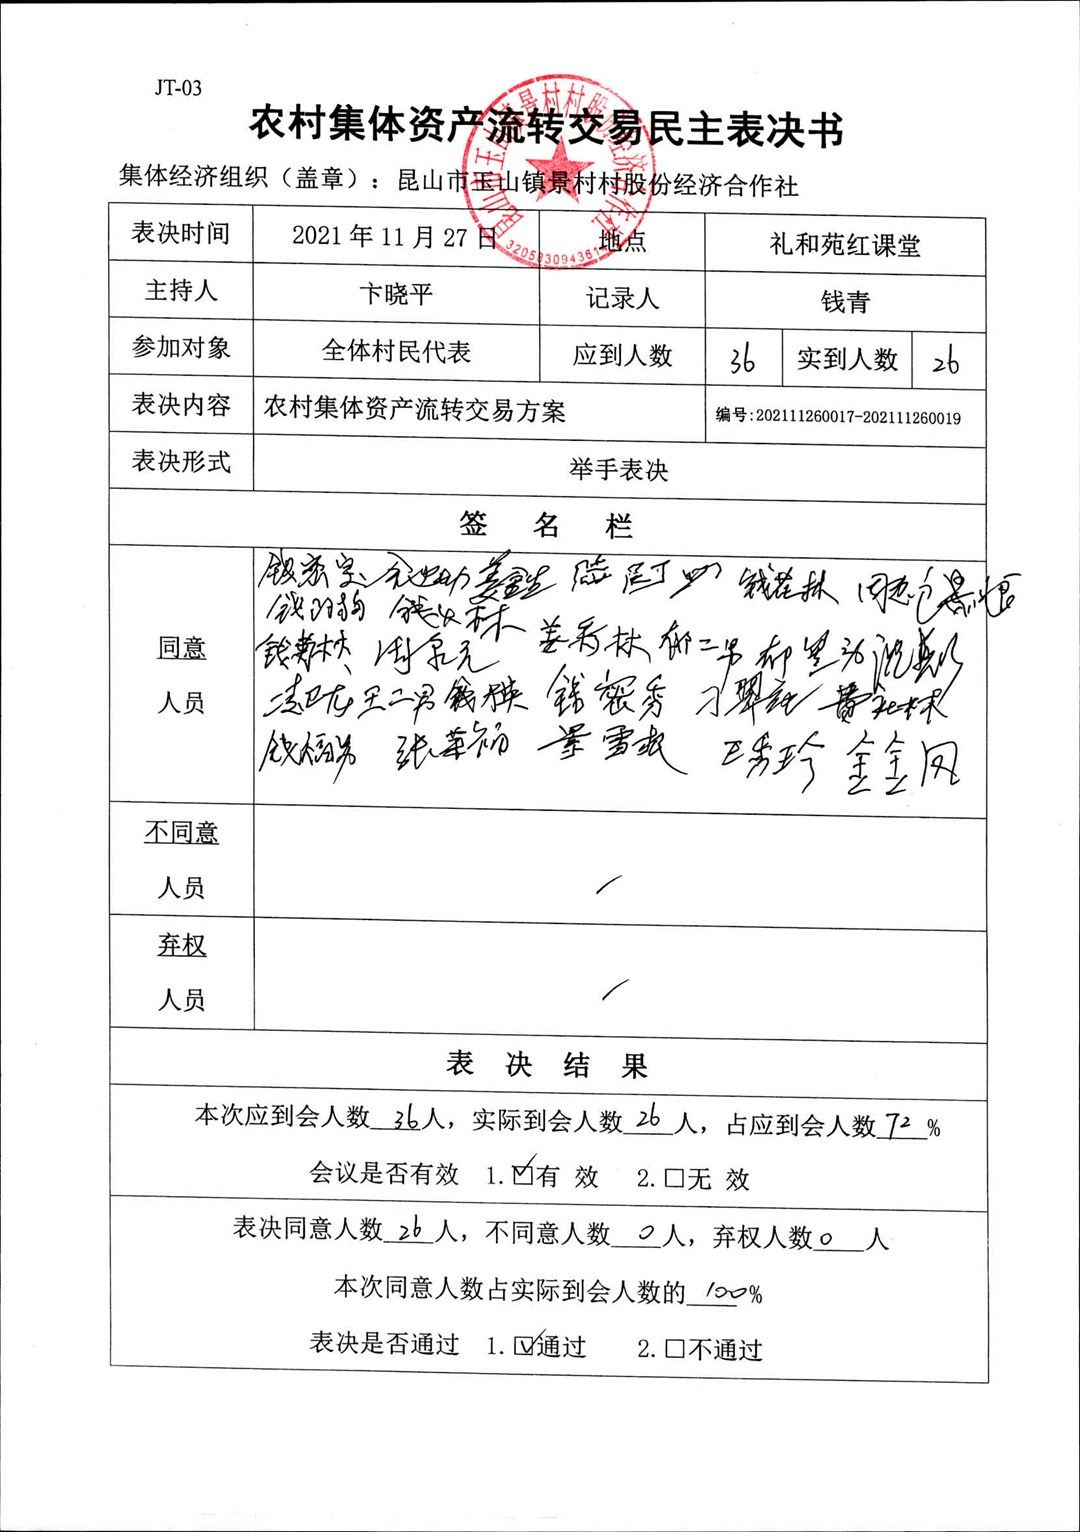 JT-03
农村集体资产流转交易民主表决书
集体经济组织（盖章）：昆山市玉山镇景村村股份经济合作社
昆山市玉山镇景村村股份经济合作社
表决时间 2021 年 11 月 27 日 地点 礼和苑红课堂
主持人 卞晓平 记录人 钱青
参加对象 全体村民代表 应到人数 36 实到人数 26
表决内容 农村集体资产流转交易方案 编号:202111260017-202111260019
表决形式 举手表决
签 名 栏
同意
人员
姜秀林 郁二男
王二男 钱密秀
王秀珍 金金凤
不同意
人员
弃权
人员
表 决 结 果
本次应到会人数 36 人，实际到会人数 26 人，占应到会人数 72 %
会议是否有效 1.☑有 效 2.□无 效
表决同意人数 26 人，不同意人数 0 人，弃权人数 0 人
本次同意人数占实际到会人数的 100 %
表决是否通过 1.☑通过 2.□不通过